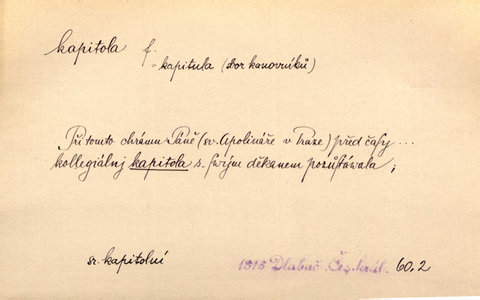 kapitola f.
= kapitula (sbor kanovníků)
Při tomto chrámu Páně (sv. Apolináře v Praze) před časy ...
kollegiálnj kapitola s swým děkanem pozůstáwala;
sr. kapitolní
1818 Dlabač Čes. král. 60.2